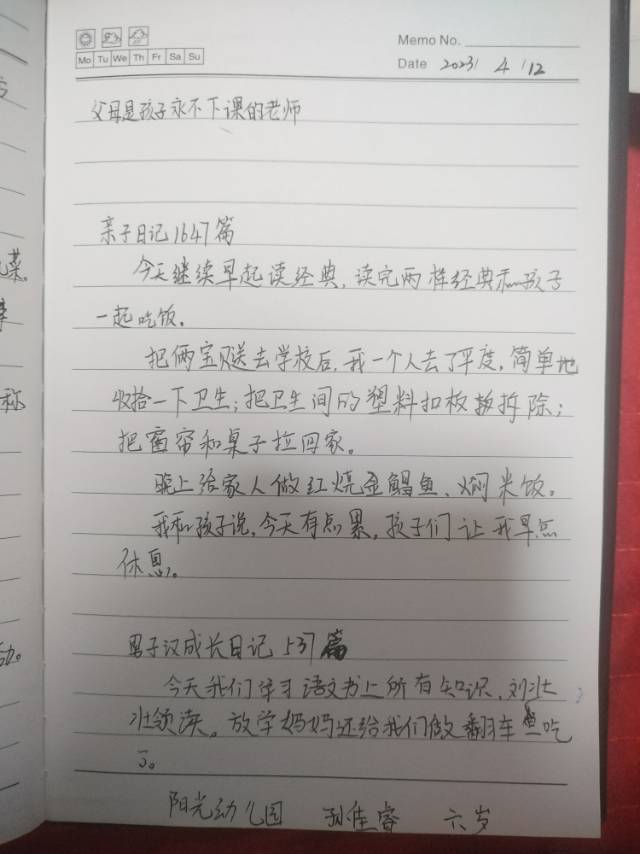 Mo Tu We Th Fr Sa Su
Memo No.
Date 2023/ 4 /12
父母是孩子永不下课的老师
亲子日记1647篇
今天继续早起读经典,读完两样经典和孩子
一起吃饭。
把俩宝贝送去学校后,我一个人去了平度,简单地
收拾一下卫生;把卫生间的塑料扣板拆除;
把窗帘和桌子拉回家。
晚上给家人做红烧金鲳鱼、焖米饭。
我和孩子说,今天有点累,孩子们让我早点
休息。
男子汉成长日记537篇
今天我们学习语文书上所有知识,刘壮
壮领读。放学妈妈还给我们做翻车鱼吃
了。
阳光幼儿园 孙佳睿 六岁
菜。
称